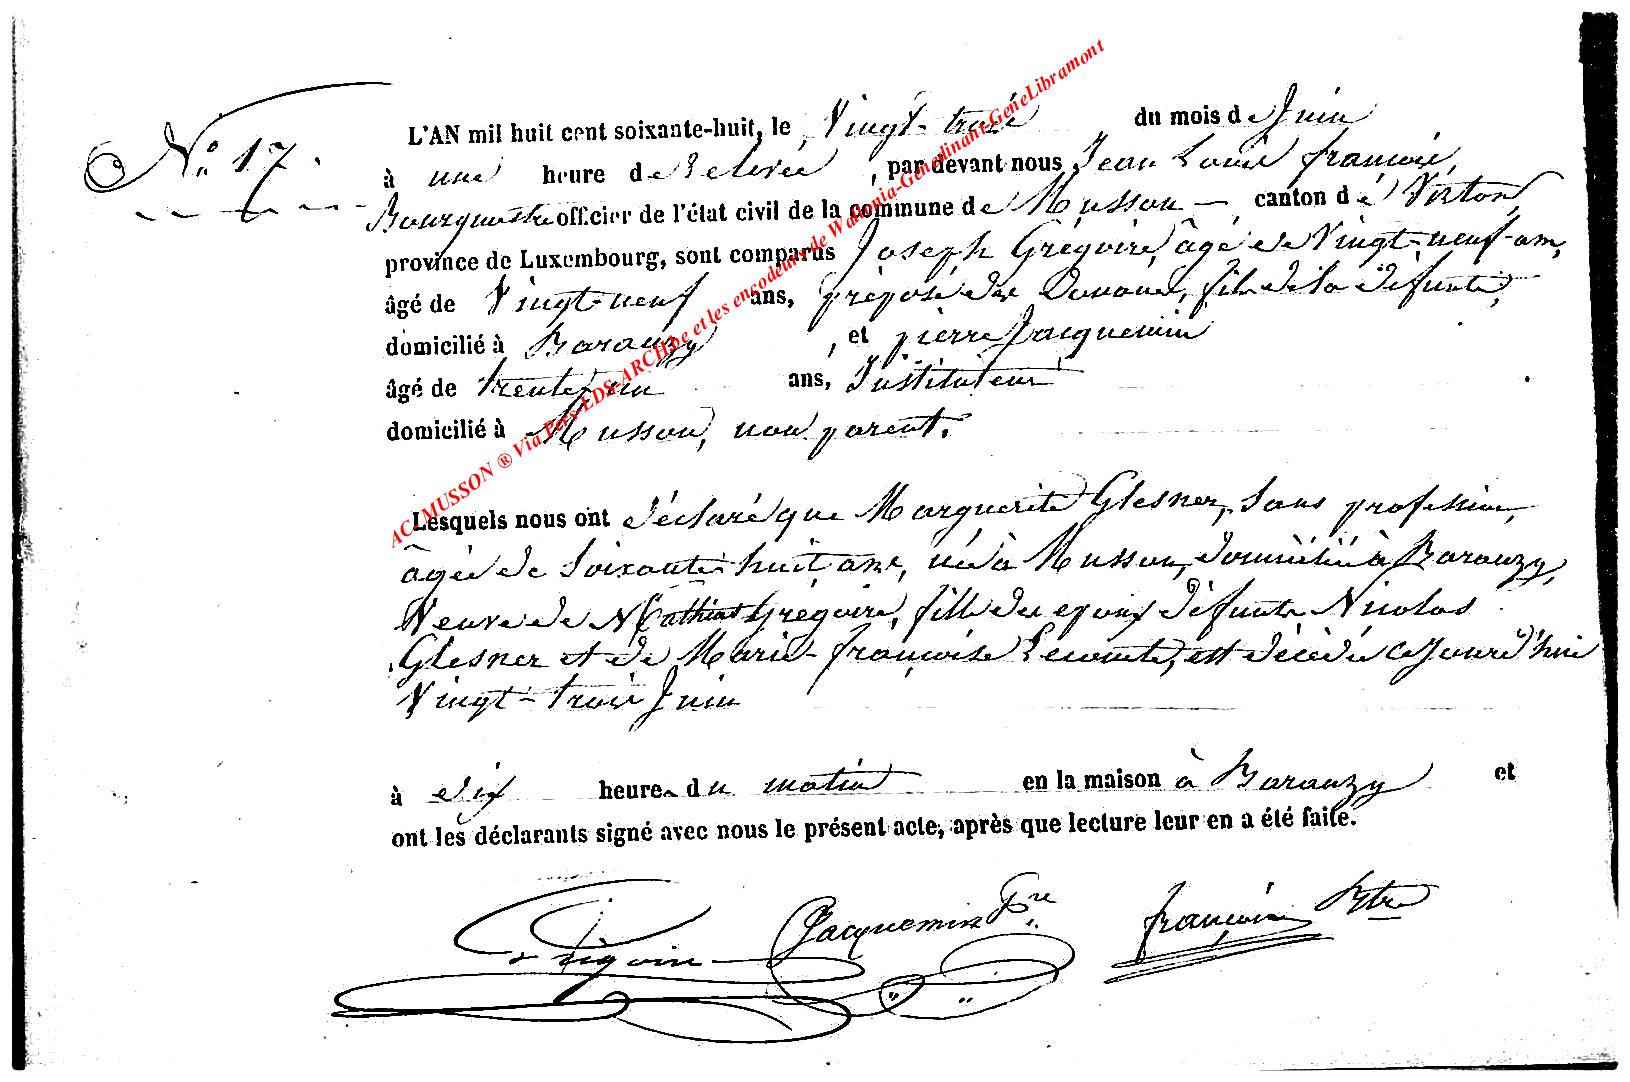 N.° 17.
L'AN mil huit cent soixante-huit, le Vingt-trois du mois de Juin
à une heure de relevée, par devant nous Jean Louis françois,
Bourgmestre officier de l'état civil de la commune de Musson, canton de Virton,
province de Luxembourg, sont comparus Joseph Grégoire, âgé de Vingt-neuf ans,
âgé de Vingt-neuf ans, préposé des Douanes, fils de la défunte,
domicilié à Baranzy, et pierre Jacquemin
âgé de trente un ans, Instituteur
domicilié à Musson, non parent.
Lesquels nous ont déclaré que Marguerite Glesner, sans profession,
âgée de Soixante huit ans, née à Musson, domiciliée à Baranzy,
Veuve de Mathias Grégoire, fille des époux défunts Nicolas
Glesner et de Marie-françoise Lecomte, est décédée ce jourd'hui
Vingt-trois Juin
à dix heures du matin en la maison à Baranzy et
ont les déclarants signé avec nous le présent acte, après que lecture leur en a été faite.
Grégoire Jacquemin Pre françois Btre
AC MUSSON ® Via Pers-EDS-ARCH.be et les encodeurs de Wallonia-Genedinant-GeneLibramont